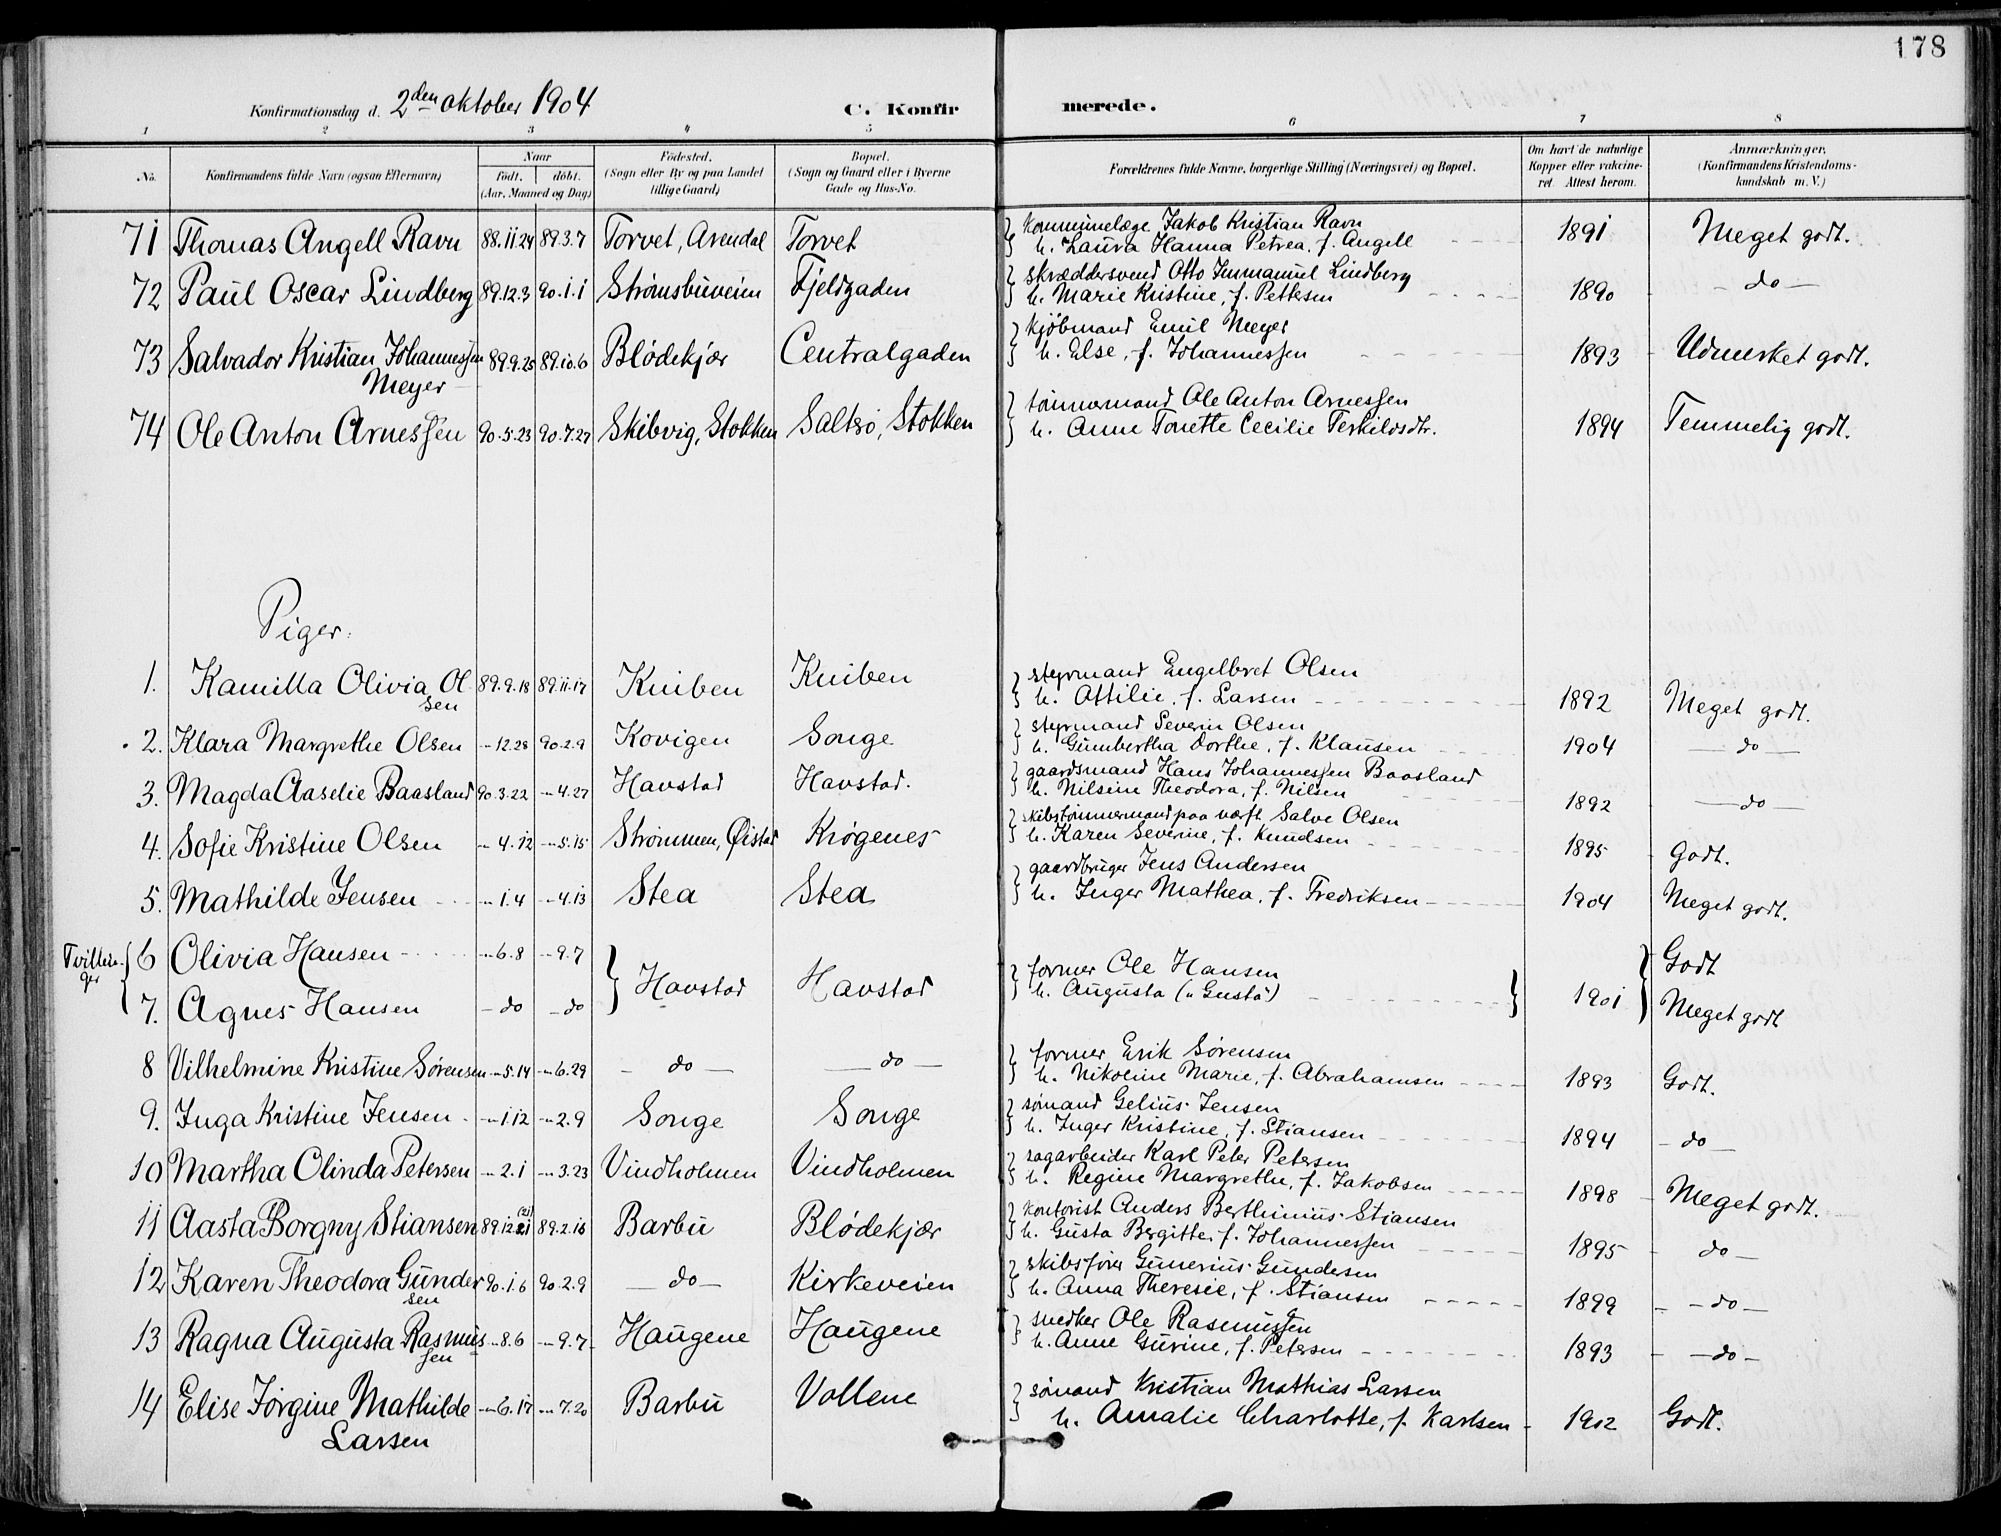 178
Konfirmationsdag d. 2den oktober 1904 C. Konfirmerede.
1 2 3 4 5 6 7 8
No. Konfirmandens fulde Navn (ogsaa Efternavn) Naar født. døbt. (Aar, Maaned og Dag) Fødested. (Sogn eller By og paa Landet tillige Gaard) Bopæl. (Sogn og Gaard eller i Byerne Gade og Hus-No. Forældrenes fulde Navne, borgerlige Stilling (Næringsvei) og Bopæl. Om havt de naturlige Kopper eller vakcineret. Attest herom. Anmærkninger. (Konfirmandens Kristendomskundskab m. V.)
71 Thomas Angell Ravn 88.11.24 89.3.7 Torvet, Arendal Torvet kommunelæge Jakob Kristian Ravn 1891 Meget godt.
h. Laura Hanna Petrea, f. Angell
72 Paul Oscar Lindberg 89.12.3 90.1.1 Strømsbuveien Fjeldgaden skræddersvend Otto Immanuel Lindberg 1890 - do -
h. Marie Kristine, f. Pettersen
73 Salvador Kristian Johannessen 89.9.25 89.10.6 Blødekjær Centralgaden kjøbmand Emil Meyer 1893 Udmerket godt.
Meyer h. Else, f. Johannessen
74 Ole Anton Arnessen 90.5.23 90.7.27 Skibvig, Stokken Saltrø, Stokken tømmermand Ole Anton Arnessen 1894 Temmelig godt.
h. Anne Tonette Cecilie Terkildsdtr.
Piger.
1. Kamilla Olivia Ol 89.9.18 89.11.17 Kniben Kniben styrmand Engelbret Olsen 1892 Meget godt.
sen h. Attilie, f. Larsen
2. Klara Margrethe Olsen -" 12.28 90.2.9 Kovigen Songe styrmand Severin Olsen 1904 - do -
h. Gumbertha Dorthe, f. Klausen
3. Magda Aaselie Baasland 90.3.22 -" 4.27 Havstad Havstad. gaardsmand Hans Johannessen Baasland 1892 - do -
h. Nilsine Theodora, f. Nilsen
4. Sofie Kristine Olsen -" 4.12 -" 5.15 Strømmen, Øistad Krøgenes skibstømmermand paa værft Salve Olsen 1895 Godt.
h. Karen Severine, f. Knudsen
5. Mathilde Jensen -" 1.4 -" 4.13 Stea Stea gaardbruger Jens Andersen 1904 Meget godt.
h. Inger Mathea, f. Fredriksen
Tvillin-
ger
6 Olivia Hansen -" 6.8 -" 9.7 Havstad Havstad former Ole Hansen 1901 Godt
h. Augusta ("Gusta")
7. Agnes Hansen - do - do Meget godt
8 Vilhelmine Kristine Sørensen -" 5.14 -" 6.29 - do - - do - former Erik Sørensen 1893 Godt.
h. Nikoline Marie, f. Abrahamsen
9. Inga Kristine Jensen -" 1.12 -" 2.9 Songe Songe sømand Gelius Jensen 1894 - do -
h. Inger Kristine, f. Stiansen
10 Martha Olinda Petersen -" 2.1 -" 3.23 Vindholmen Vindholmen sagarbeider Karl Peter Petersen 1898 Meget godt.
h. Regine Margrethe, f. Jakobsen
11 Aasta Borgny Stiansen 89.12.21 (21) 89.2.16 Barbu Blødekjær kontorist Anders Berthinius Stiansen 1895 - do -
h. Gusta Bergitte, f. Johannessen
12 Karen Theodora Gunder 90.1.6 90.2.9 - do - Kirkeveien skibsfører Gunerius Gundersen 1899 - do -
sen h. Anna Theresie, f. Stiansen
13 Ragna Augusta Rasmus -" 8.6 -" 9.7 Haugene Haugene snedker Ole Rasmussen 1893 - do -
sen h. Anne Gurine, f. Petersen
14 Elise Jørgine Mathilde -" 6.17 -" 7.20 Barbu Vollene sømand Kristian Mathias Larsen 1902 Godt.
Larsen h. Amalie Charlotte, f. Karlsen